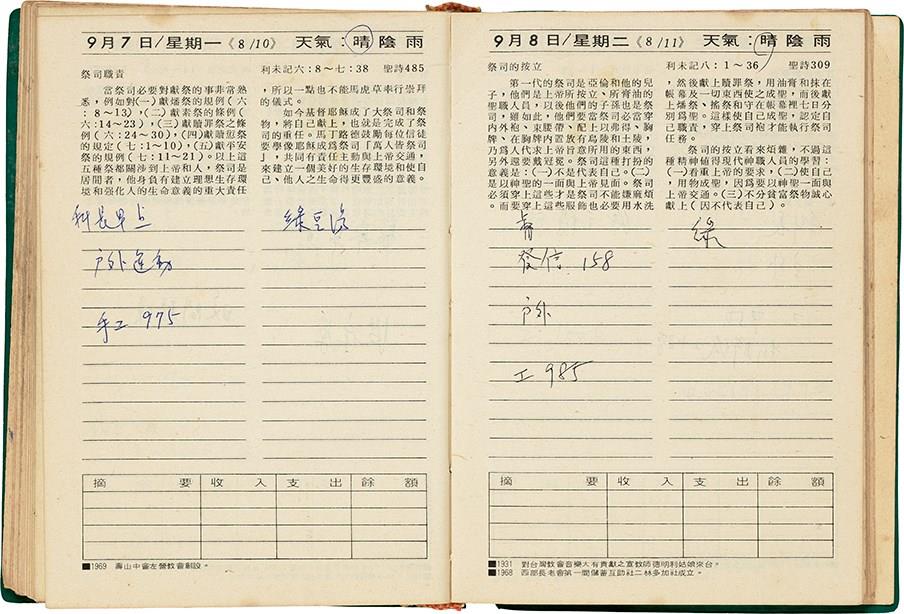 9月7日/星期一《8/10》 天氣：晴陰雨
祭司職責
利未記六：8～七：38 聖詩485
當祭司必要對獻祭的事非常熟
悉，例如對(一)獻燔祭的規例(六
：8～13)，(二)獻素祭的條例(
六：14～23)，(三)獻贖罪祭之條
例(六：24～30)，(四)獻贖愆祭
的規定(七：1～10)，(五)獻平安
祭的規例(七：11～21)。以上這
五種祭都關涉到上帝和人，祭司是
居間者，他身負有建立理想生存環
境和強化人的生命意義的重大責任
，所以一點也不能馬虎草率行崇拜
的儀式。
如今基督耶穌成了大祭司和祭
物，將自己獻上，也就是完成了祭
司的重任。馬丁路德鼓勵每位信徒
要學像耶穌成為祭司「萬人皆祭司
」，共同有責任主動與上帝交通，
來建立一個美好的生存環境和使自
己、他人之生命得更豐盛的意義。
科長早点
户外運動
手工 975
綠豆湯
摘要 收入 支出 餘額
■1969 壽山中會左營教會創設。
9月8日/星期二《8/11》 天氣：晴陰雨
祭司的按立
利未記八：1～36 聖詩309
第一代的祭司是亞倫和他的兒
子，他們是上帝所按立、所膏油的
聖職人員，以後他們的子孫也是祭
司，雖如此，他們要當祭司必當穿
內外袍、束腰帶、配上以弗得、胸
牌、在胸牌內置放有烏陵和土陵，
乃為人代求上帝旨意所用的東西，
另外還要戴冠冕。祭司這種打扮的
意義是：(一)不是代表自己。(二)
是以神聖的一面與上帝見面。祭司
必須穿上這些才是祭司不能嫌麻煩
。而要穿上這些服飾也必要用水洗
，然後獻上贖罪祭，用油膏和抹在
帳幕及一切東西使之成聖，而後獻
上燔祭、搖祭和守在帳幕裡七日分
別為聖。這樣使自己成聖，認定自
己職責，穿上祭司袍才能執行祭司
任務。
祭司的按立看來煩雜，不過這
種精神值得現代神職人員的學習：
(一)看重上帝的要求，(二)使自己
，用物成聖，因為要以神聖一面與
上帝交通。(三)不分貧富祭物誠心
獻上(因不代表自己)。
發信 158
户外
工 985
綠
摘要 收入 支出 餘額
■1931 對台灣教會音樂大有貢獻之宣教師德明利姑娘來台。
■1968 西部長老會第一間儲蓄互助社二林多加社成立。